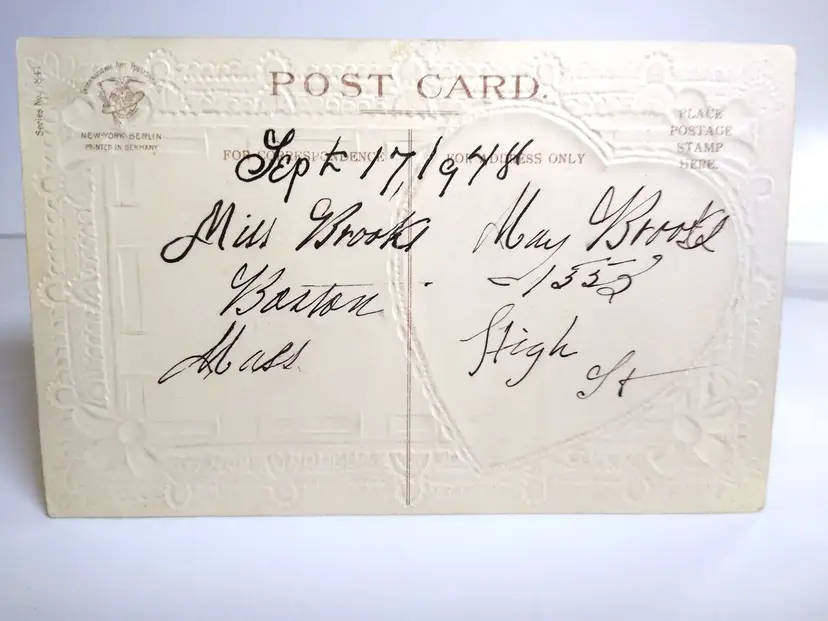 POST CARD.
Series No.
NEW-YORK BERLIN
PRINTED IN GERMANY
PLACE
POSTAGE
STAMP
HERE.
FOR CORRESPONDENCE
FOR ADDRESS ONLY
Sept 17, 1948
Miss Brooks
Boston
Mass
May Brooks
-1552
High
St